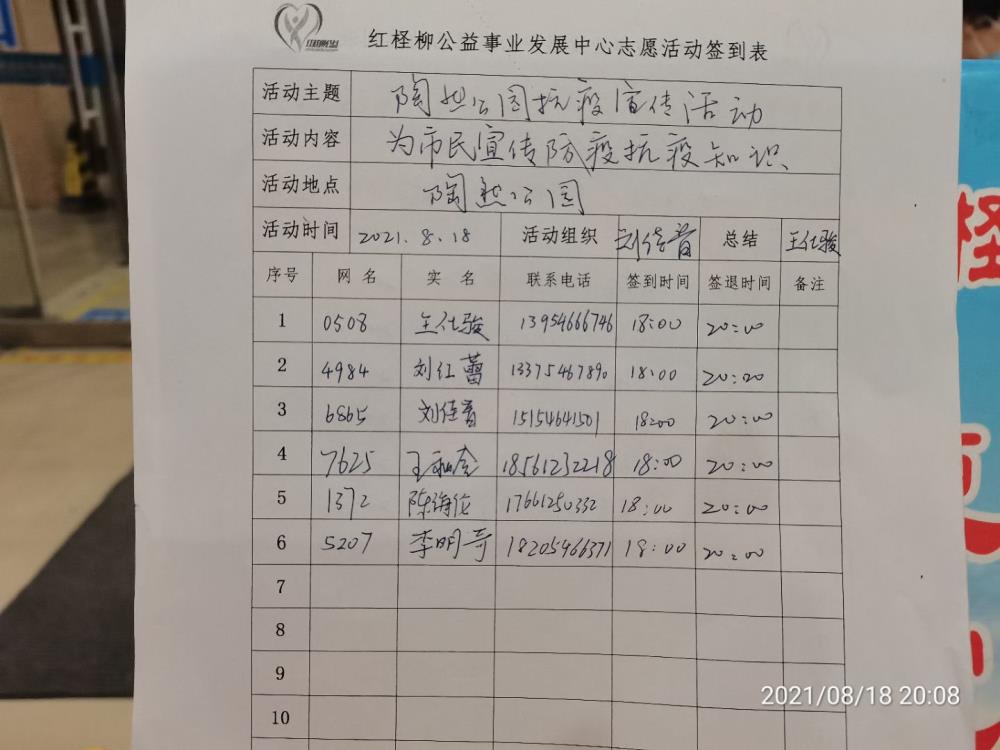 红柽柳公益事业发展中心志愿活动签到表
活动主题 陶然公园抗疫宣传活动
活动内容 为市民宣传防疫抗疫知识
活动地点 陶然公园
活动时间 2021.8.18 活动组织 刘佳音 总结 王仕骏
序号 网名 实名 联系电话 签到时间 签退时间 备注
1 0508 王仕骏 13954666746 18:00 20:00
2 4984 刘红蕾 13375467890 18:00 20:00
3 6865 刘佳音 15154641501 18:00 20:00
4 7625 王 18561232218 18:00 20:00
5 1372 陈海伦 17661250332 18:00 20:00
6 5207 李明奇 18205466371 18:00 20:00
7
8
9
10
2021/08/18 20:08